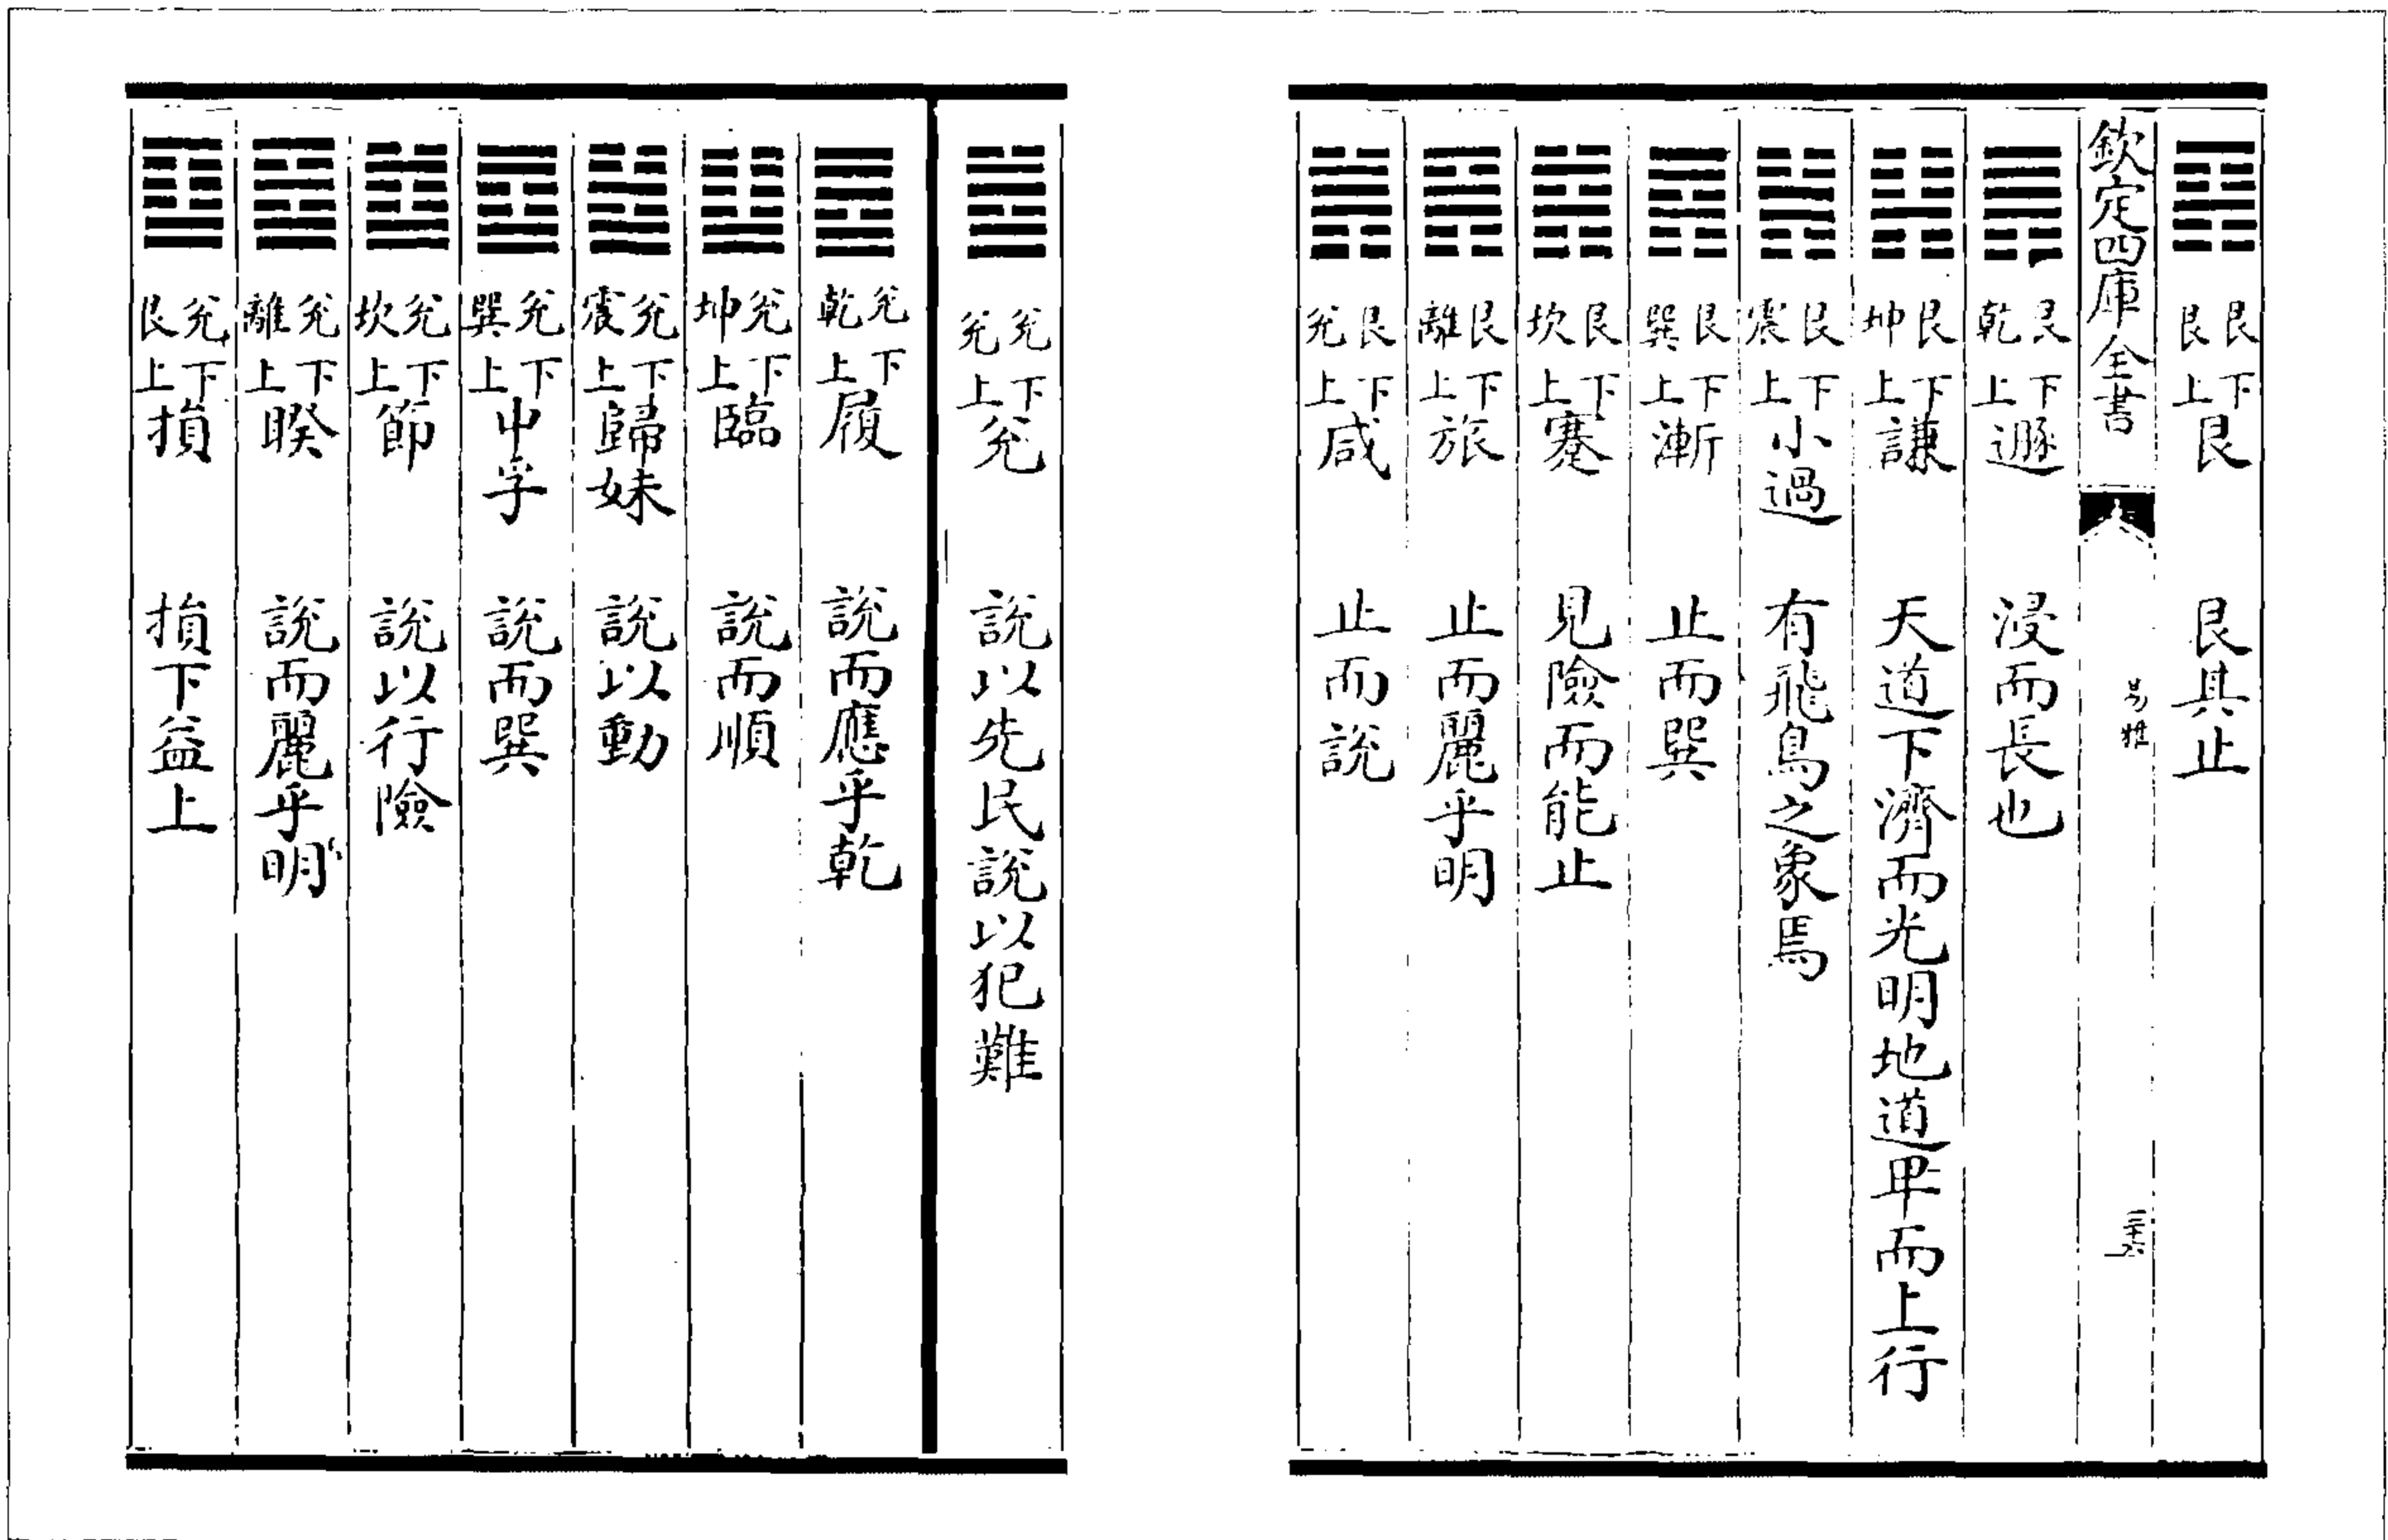 ䷳艮下艮上艮 艮其止
欽定四庫全書 易雅 三十六
䷠艮下乾上遯 浸而長也
䷎艮下坤上謙 天道下濟而光明地道卑而上行
䷽艮下震上小過 有飛鳥之象焉
䷴艮下巽上漸 止而巽
䷦艮下坎上蹇 見險而能止
䷷艮下離上旅 止而麗乎明
䷞艮下兊上咸 止而説
䷹兊下兊上兊 説以先民説以犯難
䷉兊下乾上履 説而應乎乾
䷒兊下坤上臨 説而順
䷵兊下震上歸妹 説以動
䷼兊下巽上中孚 説而巽
䷻兊下坎上節 説以行險
䷥兊下離上睽 説而麗乎明
䷨兊下艮上損 損下益上